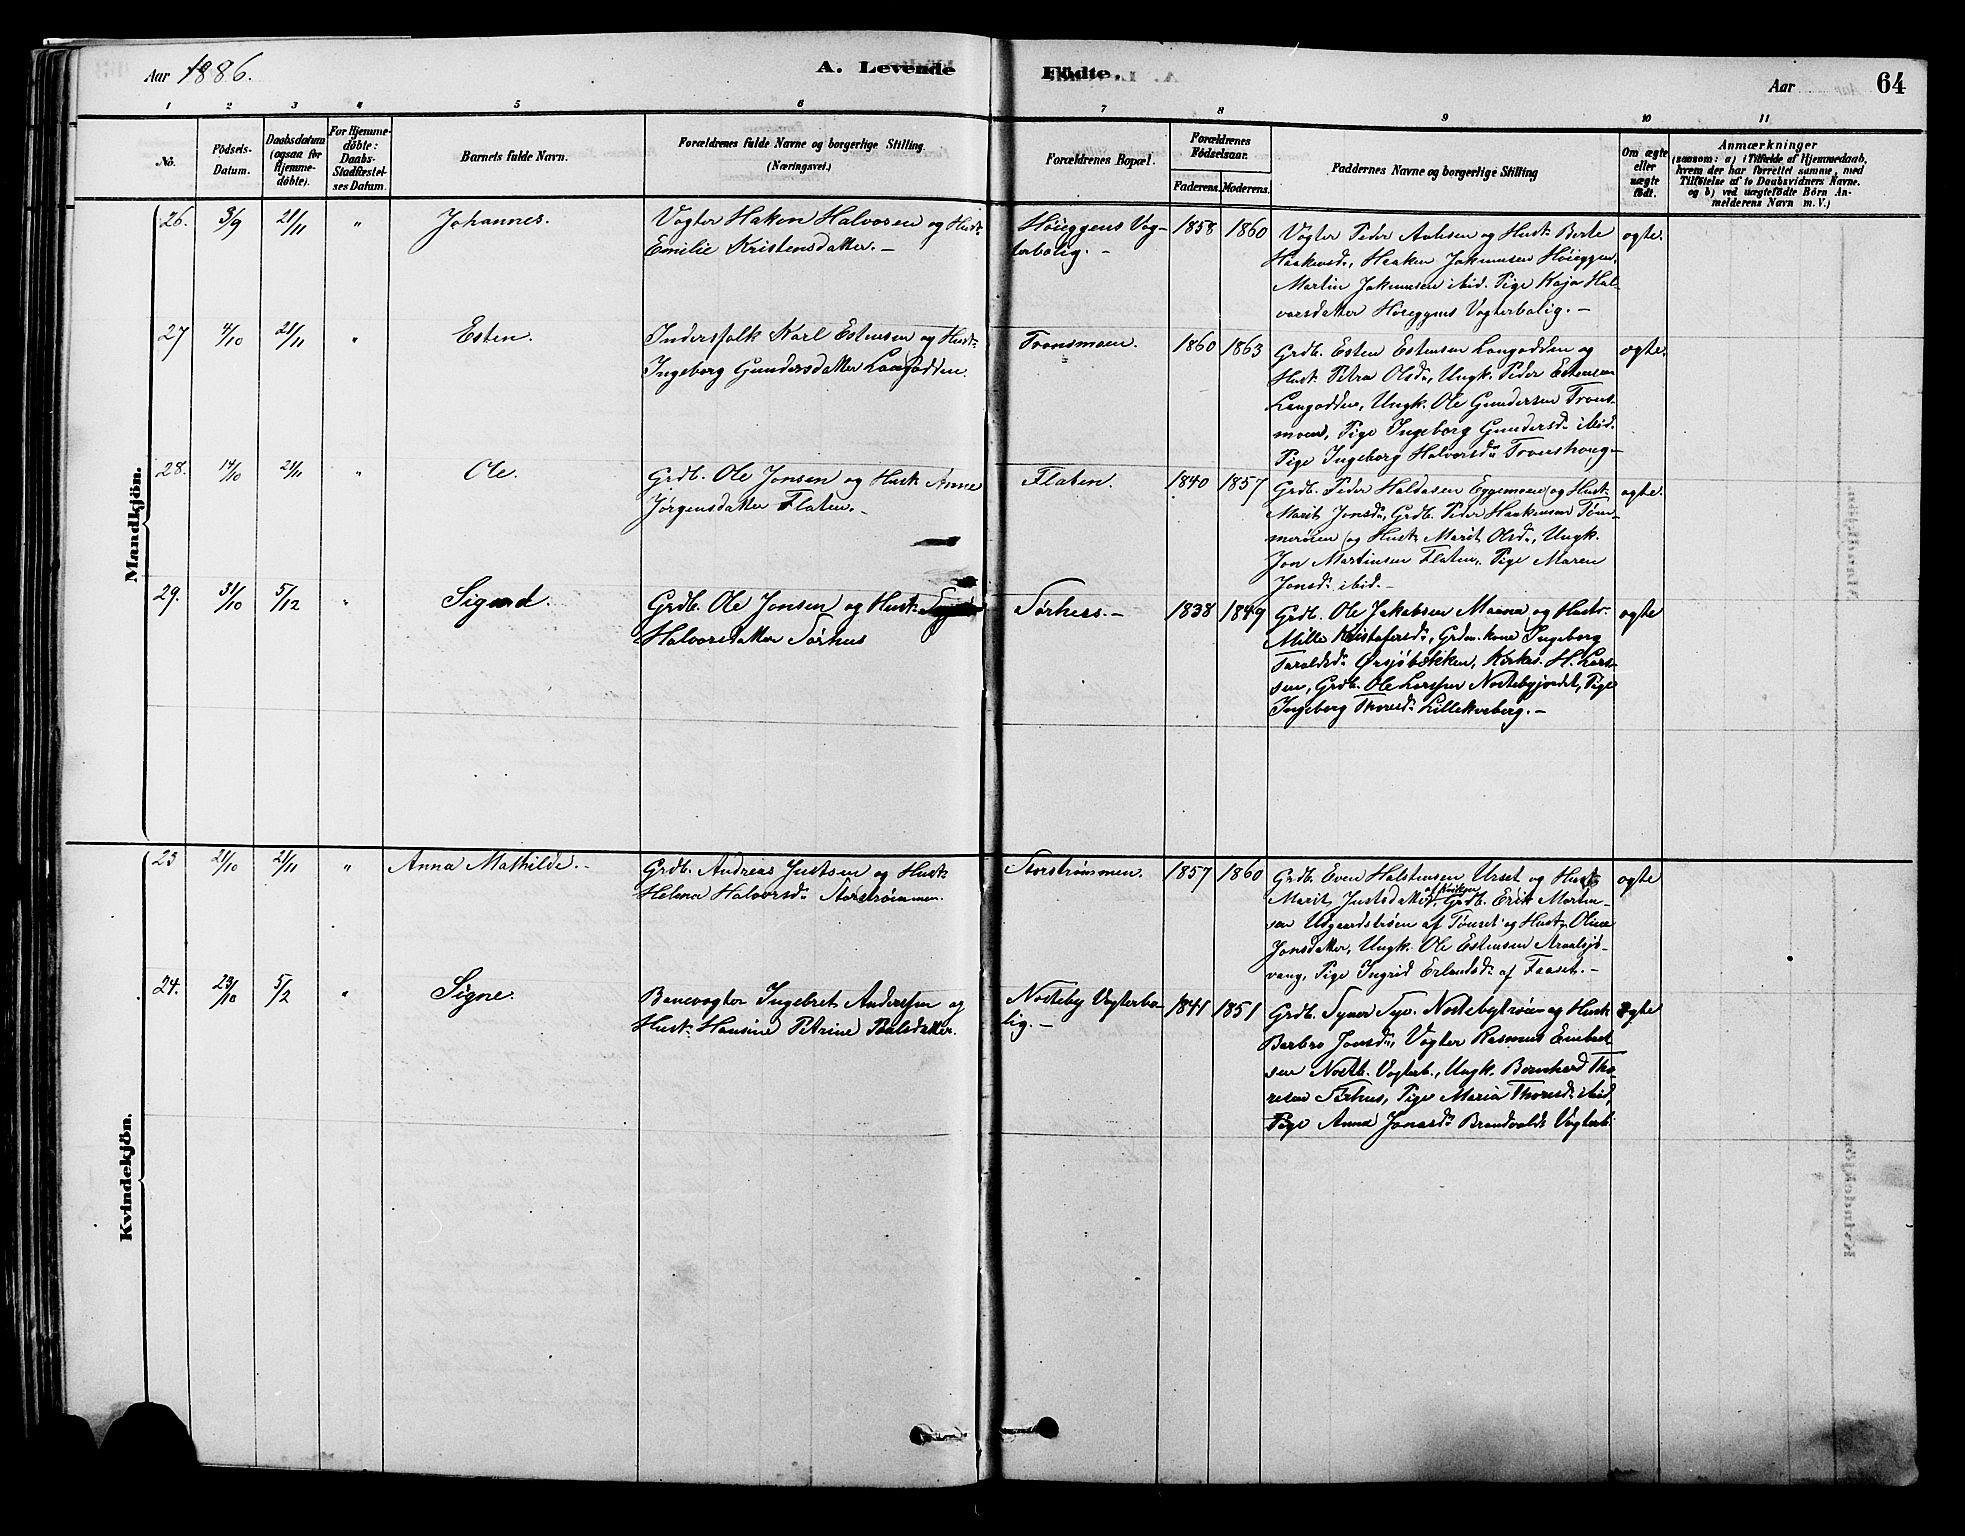 Aar 1886.
A. Levende Fødte.
Aar
64
1 2 3 4 5 6 7 8 9 10 11
No.
Fødsels-
Datum.
Daabsdatum
(ogsaa for
Hjemme-
døbte).
For Hjemme-
døbte:
Daabs-
Stadfæstel-
ses Datum.
Barnets fulde Navn.
Forældrenes fulde Navne og borgerlige Stilling
(Næringsvei.)
Forældrenes Bopæl.
Forældrenes
Fødselsaar.
Faderens. Moderens.
Faddernes Navne og borgerlige Stilling
Om ægte
eller
uægte
født.
Anmærkninger
(saasom: a) i Tilfælde af Hjemmedaab,
hvem der har forrettet samme, med
Tilføielse af to Daabsvidners Navne.
og b) ved uægtefødte Børn An-
melderens Navn m. V.)
Mandkjön.
26. 3/9 21/11 " Johannes.
Vogter Hakon Halvorsen og Hust:
Emilie Kristensdatter. -
Høieggens Vog-
terbolig. -
1858 1860
Vogter Peder og Hust: Berte
Haakensd:, Haaken Jakumsen Høieggen,
Martin Jakumsen ibid. Pige Kaja Hal-
vorsdatter Høieggens Vogterbolig. -
ægte.
27 4/10 21/11 " Esten.
Inderstfolk Karl Estensen og Hust:
Ingeborg Gundersdatter Langodden.
Tronsmoen.
1860 1863
Grdb. Esten Estensen Langodden og
Hust: Petra Olsd:, Ungk. Peder Estensen
Langodden, Ungk. Ole Gundersen Trons-
moen, Pige Ingeborg Gundersd: ibid.
Pige Ingeborg Halvorsd: Tronshoug -
ægte.
28. 14/10 21/11 " Ole.
Grdb. Ole Jonsen og Hust: Anne
Jørgensdatter Flaten. -
Flaten.
1840 1857
Grdb. Peder Haldosen Eggemoen og Hust:
Marit Jonsd:, Grdb. Peder Haakensen Tøm-
merøien og Hust: Marit Olsd:, Ungk.
Jon Martinsen Flaten, Pige Maren
Jonsd: ibid. -
ægte.
29. 31/10 5/12 " Sigurd.
Grdb. Ole Jonsen og Hust:
Halvorsdatter Sørhus
Sørhus. -
1838 1849
Grdb. Ole Jakobsen Maana og Hustr.
Mille Kristofersd:, Grdm. kone Ingeborg
Taraldsd: Ørsjøbækken, Kirkes. H. Lars-
sen, Grdb. Ole Larssen Nostebyjordet, Pige
Ingeborg Thoresd: Lillekveberg. -
ægte
Kvindekjön.
23 21/10 21/11 " Anna Mathilde. -
Grdb. Andreas Justsen og Hust:
Helena Halvorsd: Storstrømmen.
Storstrømmen.
1857 1860
Grdb. Even Halstensen Urset og Hust:
Marit Justsdatter, Grdb. Erik Morten-
sen Udgaardstrøen af Tønset og Hust: Oline
Jonsdatter, Ungk. Ole Estensen
vang, Pige Ingrid Erlandsd: af Faaset. -
ægte
24. 23/10 5/2 " Signe.
Banevogter Ingebret Anderssen og
Hust: Hansine Petrine Paulsdatter.
Nosteby Vogterbo-
lig. -
1841 1851
Grdb. Syver Syv. Nostebytrøen og Hust:
Barbro Jonsd:, Vogter Rasmus Embret-
sen Nosteb. Vogterb., Ungk. Bernhard Tho-
resen Sørhus, Pige Maria Thoresd: ibid,
Pige Anna Jonasd: Brandvolds Vogterb:
ægte